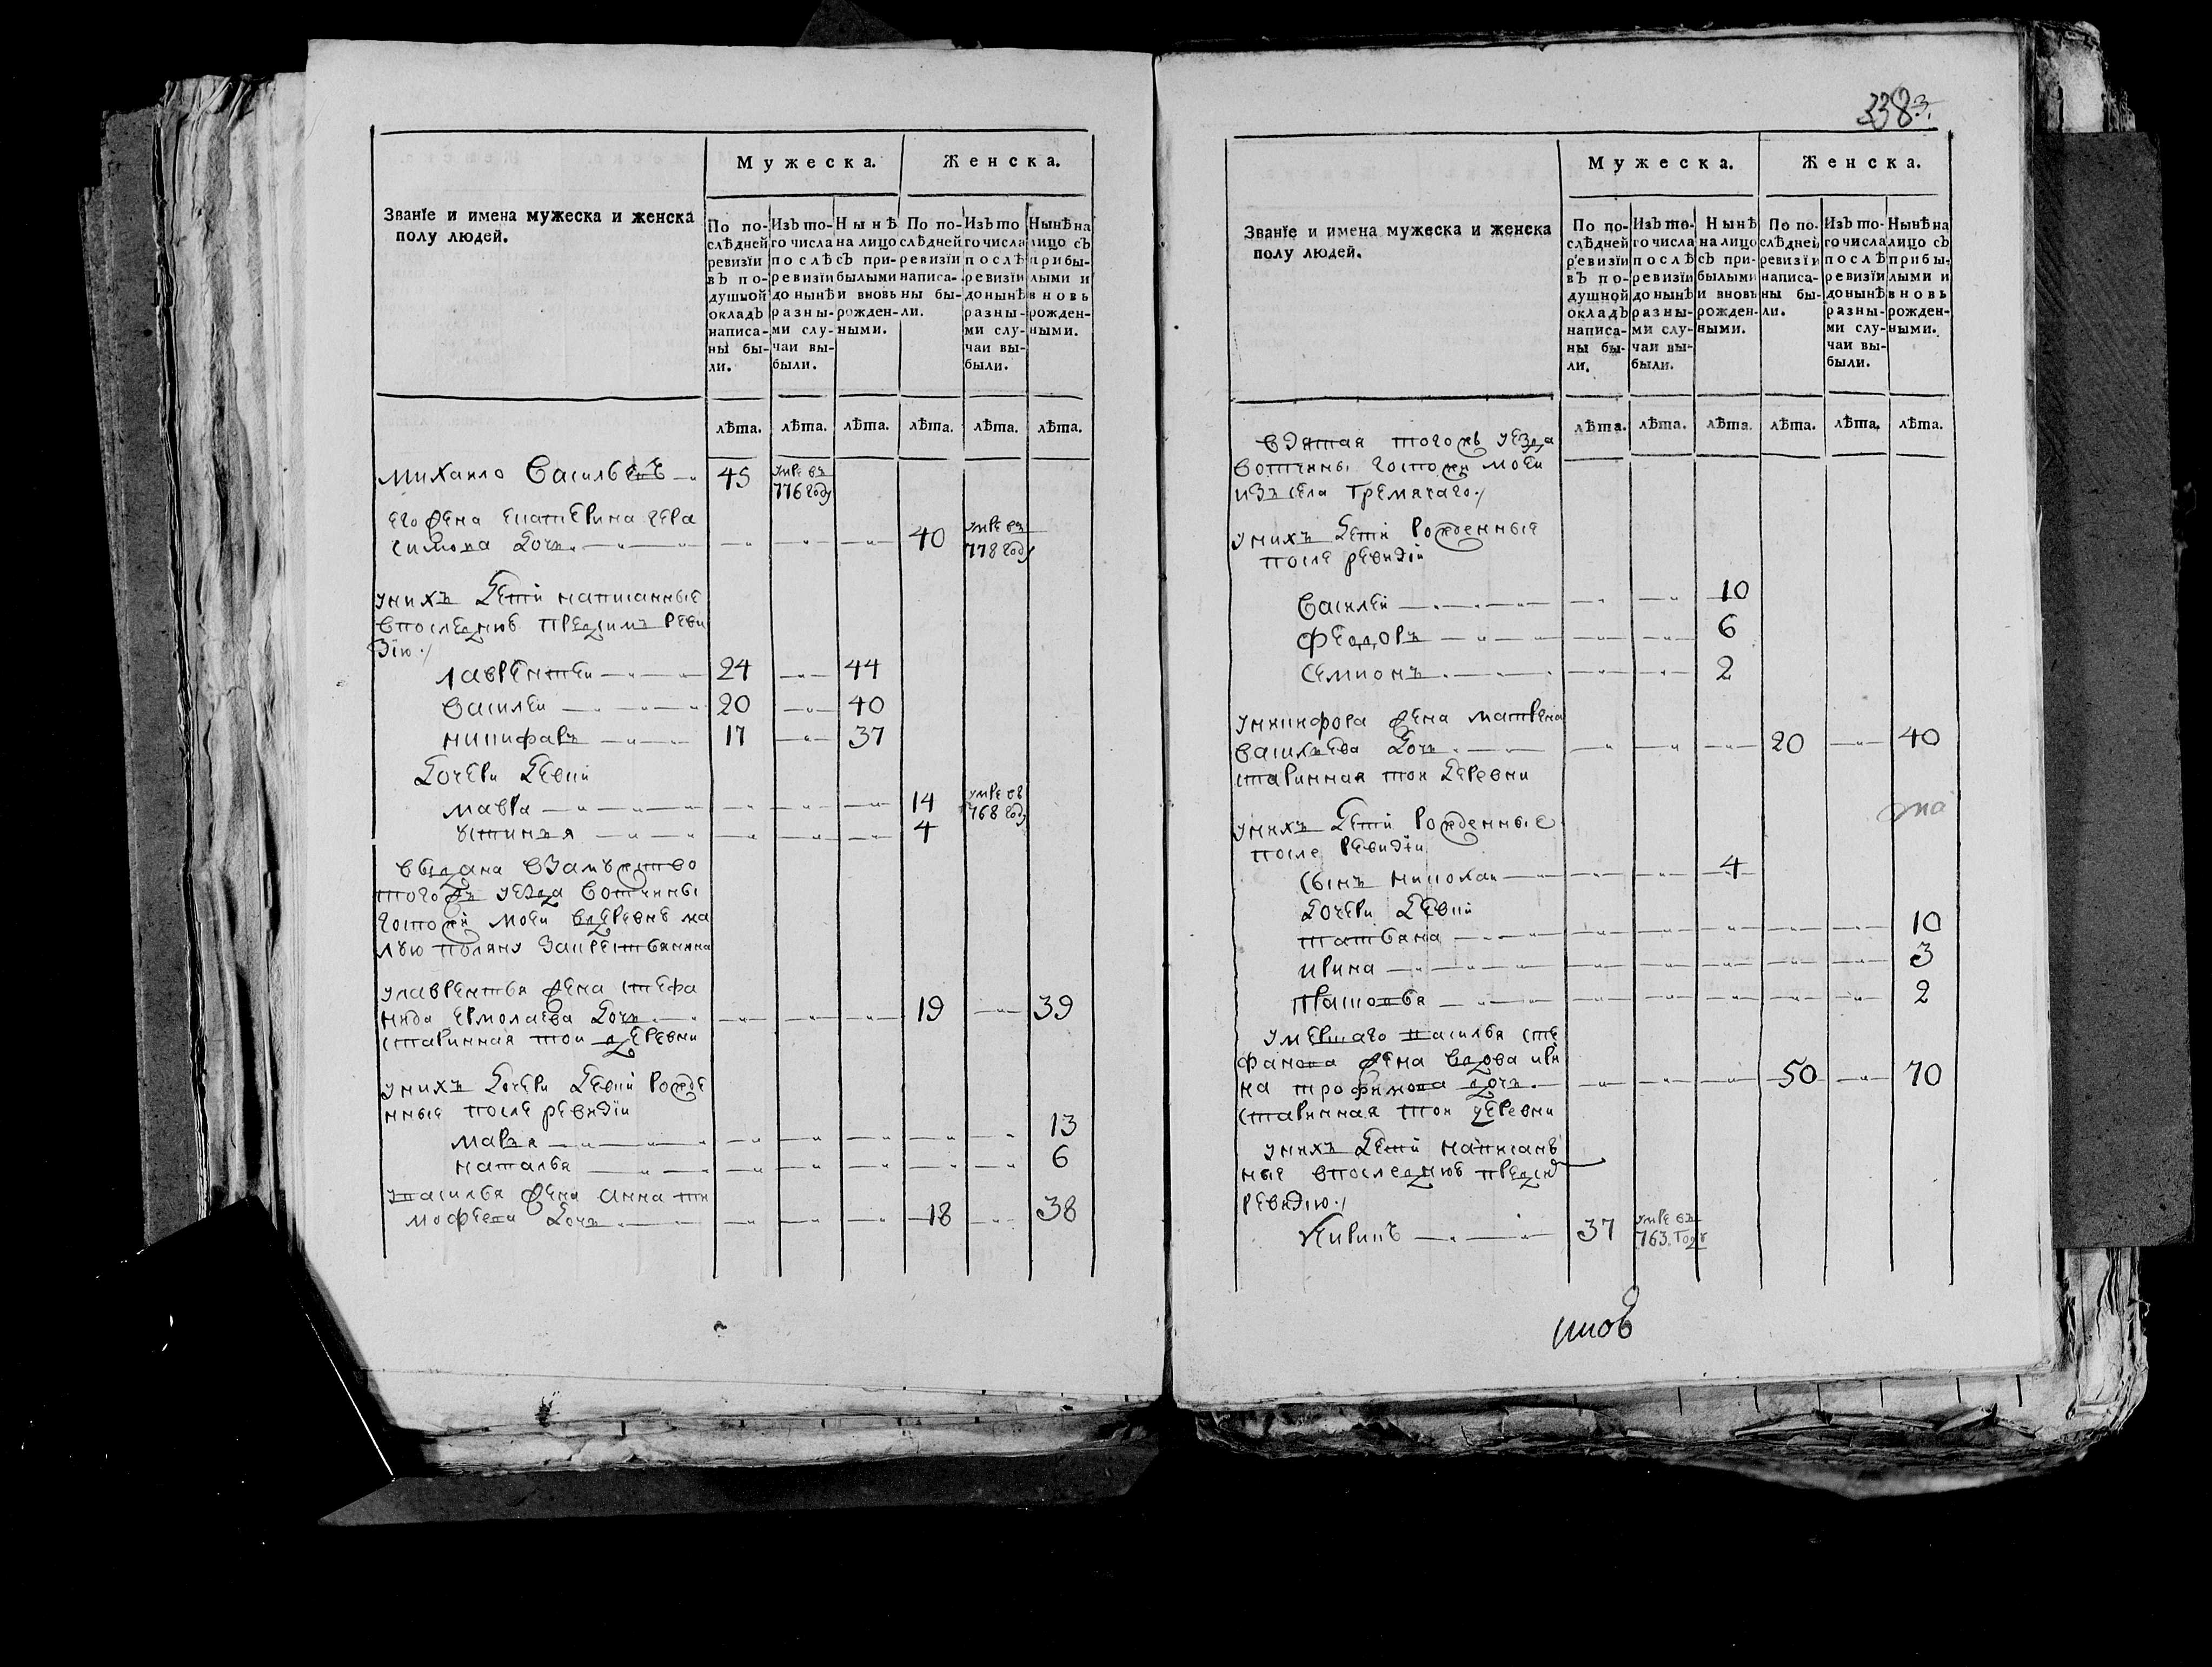 Званїе и имена мужеска и женска
полу людей.
Мужеска.
Женска.
По по-
слѣдней
ревизїи
въ по-
душной
окладъ
написа-
ны бы-
ли.
Изъ то-
го числа
послѣ
ревизїи
до нынѣ
разны-
ми слу-
чаи вы-
были.
Нынѣ
на лицо
съ при-
былыми
и вновь
рожден-
ными.
По по-
слѣдней
ревизїи
написа-
ны бы-
ли.
Изъ то
го числа
послѣ
ревизїи
до нынѣ
разны-
ми слу-
чаи вы-
были.
Нынѣ на
лицо съ
прибы-
лыми и
вновь
рожден-
ными.
лѣта. лѣта. лѣта. лѣта. лѣта. лѣта.
Михаило Васильевъ 45 умре въ
776 году
его жена екатерина гера
симова дочь 40 умре въ
778 году
унихъ дети написанные
впоследнюю предъ симъ реви
зїю
лаврентеи 24 44
василеи 20 40
никифаръ 17 37
дочери девки
мавра 14 умре въ
768 году
устинья 4
выдана взамужство
тогожъ уезда вотчины
госпожи моеи вдеревне ма
лую поляну закрестьянина
улаврентья жена степа
нида ермолаева дочь 19 39
старинная тои деревни
унихъ дочери девки рожде
нные после ревизїи
марья 13
наталья 6
увасилья жена анна ти
мофеева дочь 18 38
3383.
Званїе и имена мужеска и женска
полу людей.
Мужеска.
Женска.
По по-
слѣдней
ревизїи
въ по-
душной
окладъ
написа-
ны бы-
ли.
Изъ то-
го числа
послѣ
ревизїи
до нынѣ
разны-
ми слу-
чаи вы-
были.
Нынѣ
на лицо
съ при-
былыми
и вновь
рожден-
ными.
По по-
слѣдней
ревизїи
написа-
ны бы-
ли.
Изъ то-
го числа
послѣ
ревизїи
до нынѣ
разны-
ми слу-
чаи вы-
были.
Нынѣ на
лицо съ
прибы-
лыми и
вновь
рожден-
ными.
лѣта. лѣта. лѣта. лѣта. лѣта. лѣта.
взятая тогожъ уезда
вотчины госпожи моеи
изъ села Гремячаго
унихъ дети рожденные
после ревизїи
василеи 10
федоръ 6
семионъ 2
уникифора жена матрена
васильева дочь 20 40
старинная тои деревни
унихъ дети рожденные
после ревизїи
сынъ николаи 4
дочери девки
татьяна 10
ирина 3
прасковья 2
умершаго василья сте
фанова жена вдова ири
на трофимова дочь 50 70
старинная тои деревни
унихъ дети написанъ
ные впоследнюю предъ сию
ревизию
Кирикъ 37 умре въ
763. году